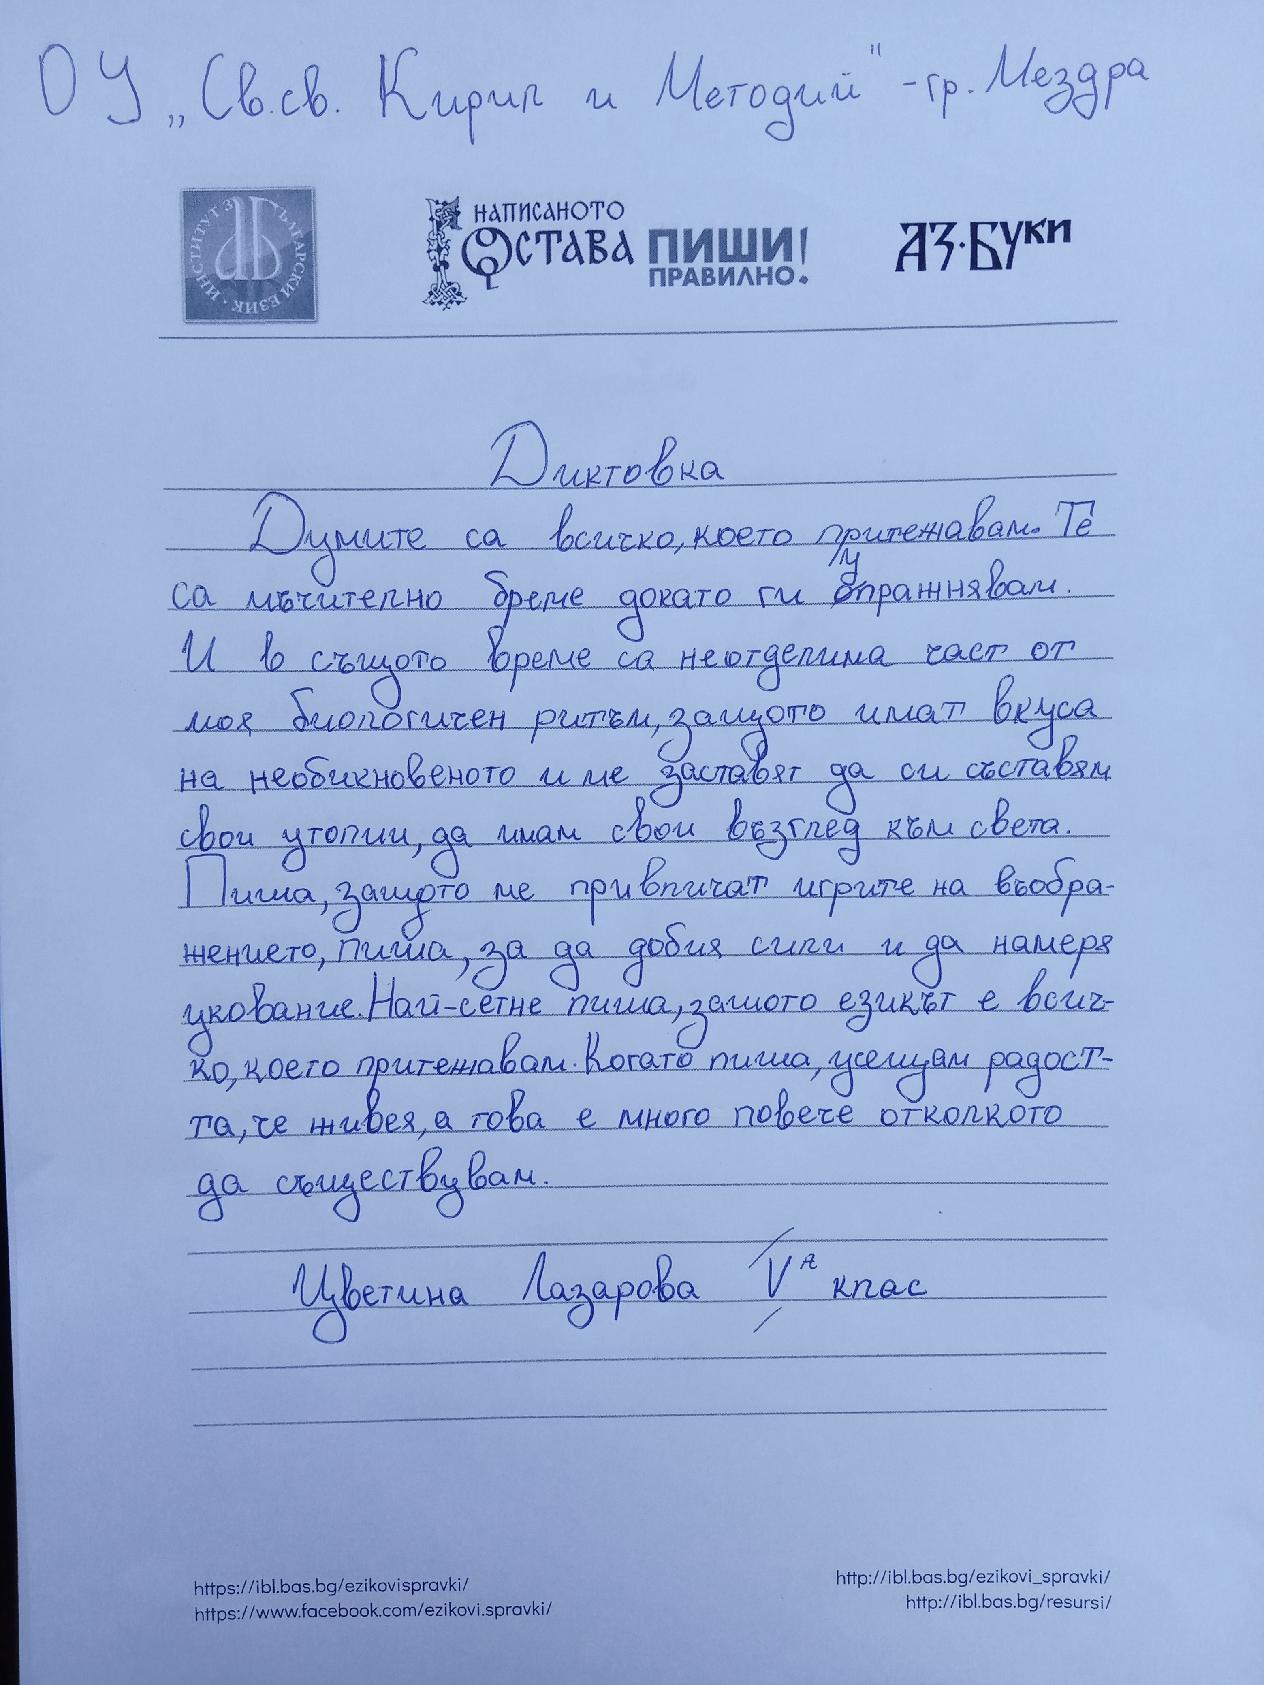 ОУ „Св.св. Кирил и Методий" - гр. Мездра
ИНСТИТУТ ЗА БЪЛГАРСКИ ЕЗИК
НАПИСАНОТО
ОСТАВА ПИШИ
ПРАВИЛНО!
АЗ·БУКИ
Диктовка
Думите са всичко, което притежавам. Те
са мъчително бреме докато ги упражнявам.
И в същото време са неотделима част от
моя биологичен ритъм, защото имат вкуса
на необикновеното и ме заставят да си съставям
свои утопии, да имам свои възглед към света.
Пиша, защото ме привличат игрите на въобра-
жението, пиша, за да добия сили и да намеря
укование. Най-сетне пиша, защото езикът е всич-
ко, което притежавам. Когато пиша, усещам радост-
та, че живея, а това е много повече отколкото
да съществувам.
Цветина Лазарова V а клас
https://ibl.bas.bg/ezikovispravki/ http://ibl.bas.bg/ezikovi_spravki/
https://www.facebook.com/ezikovi.spravki/ http://ibl.bas.bg/resursi/